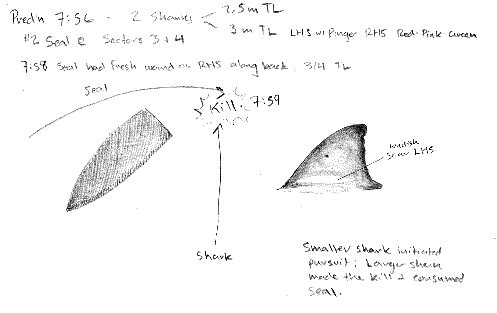 Pred'n 7:56 - 2 Sharks < 2.5m TL
3m TL LHS w/ Pinger RHS Red-Pink-Green
#2 Seal @ Sectors 3 + 4
7:58 Seal had fresh wound on RHS along back, 3/4 TL
Seal
Kill - 7:59
whitish
scar LHS
Shark
Smaller shark initiated
pursuit; Larger shark
made the kill + consumed
seal.